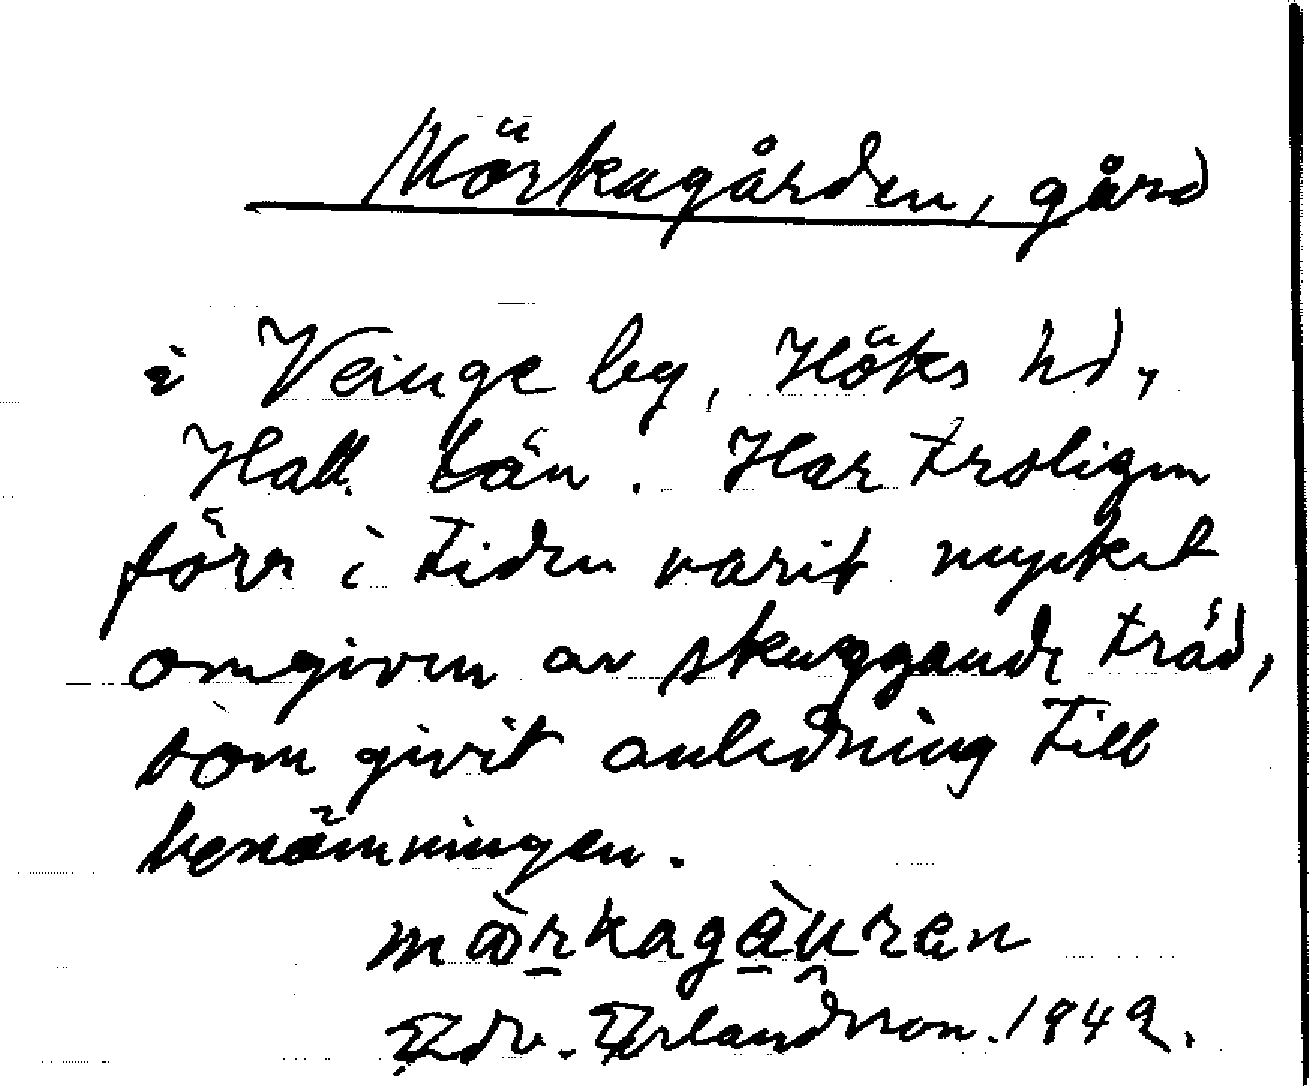 Mörkagården, gård
i Veinge by, Höks hd,
Hall. län. Har troligen
förr i tiden varit mycket
omgiven av skuggande träd,
som givit anledning till
benämningen.
Edv. Erlandsson. 1949.